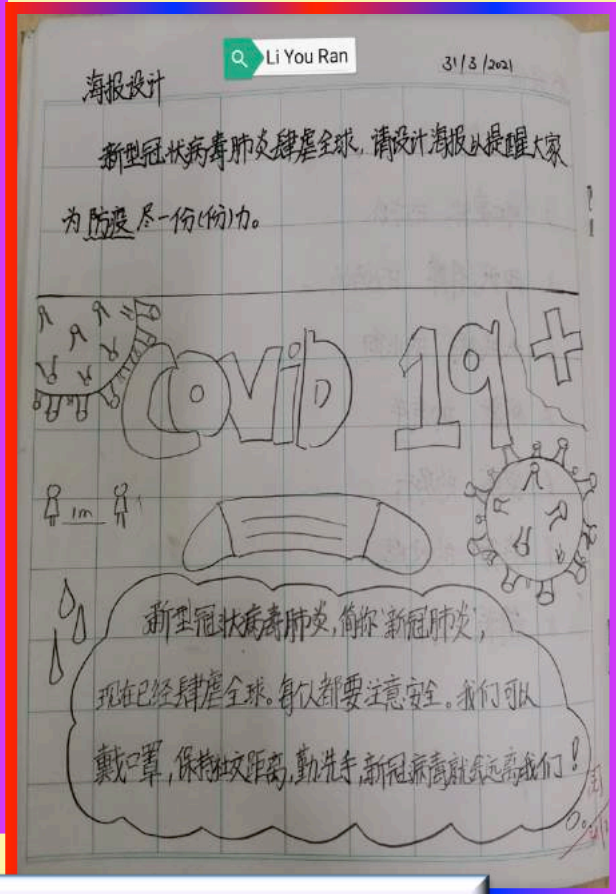 Li You Ran
31/3/2021
海报设计
新型冠状病毒肺炎肆虐全球,请设计海报以提醒大家
为防疫尽一份(份)力。
COViD 19
1m
新型冠状病毒肺炎,简称‘新冠肺炎’,
现在已经肆虐全球。每个人都要注意安全。我们可以
戴口罩,保持社交距离,勤洗手,新冠病毒就会远离我们!